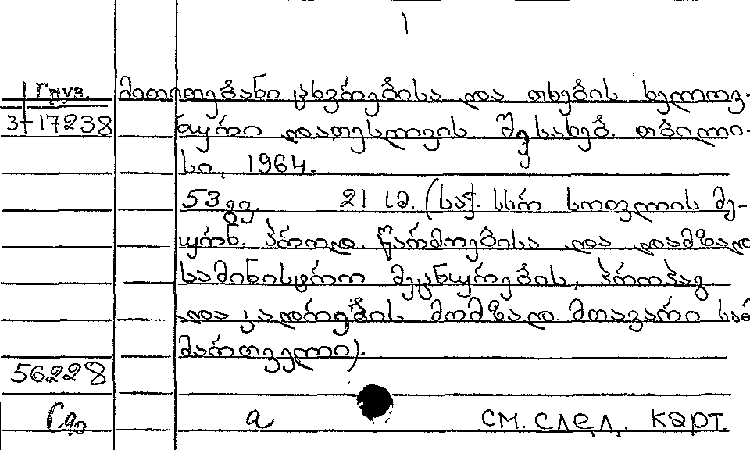 1
Груз.
3-17238
მითითებანი ცხვრებისა და თხების ხელოვ-
ნური დათესლვის შესახებ. თბილი-
სი, 1964.
53 გვ. 21 სმ. (საქ. სსრ სოფლის მე-
ურნ. პროდ. წარმოებისა და დამზად
სამინისტრო მეცნიერების, პროპაგ
და კადრების მომზად მთავარი სამ
მართველო).
56228
а см. след. карт.